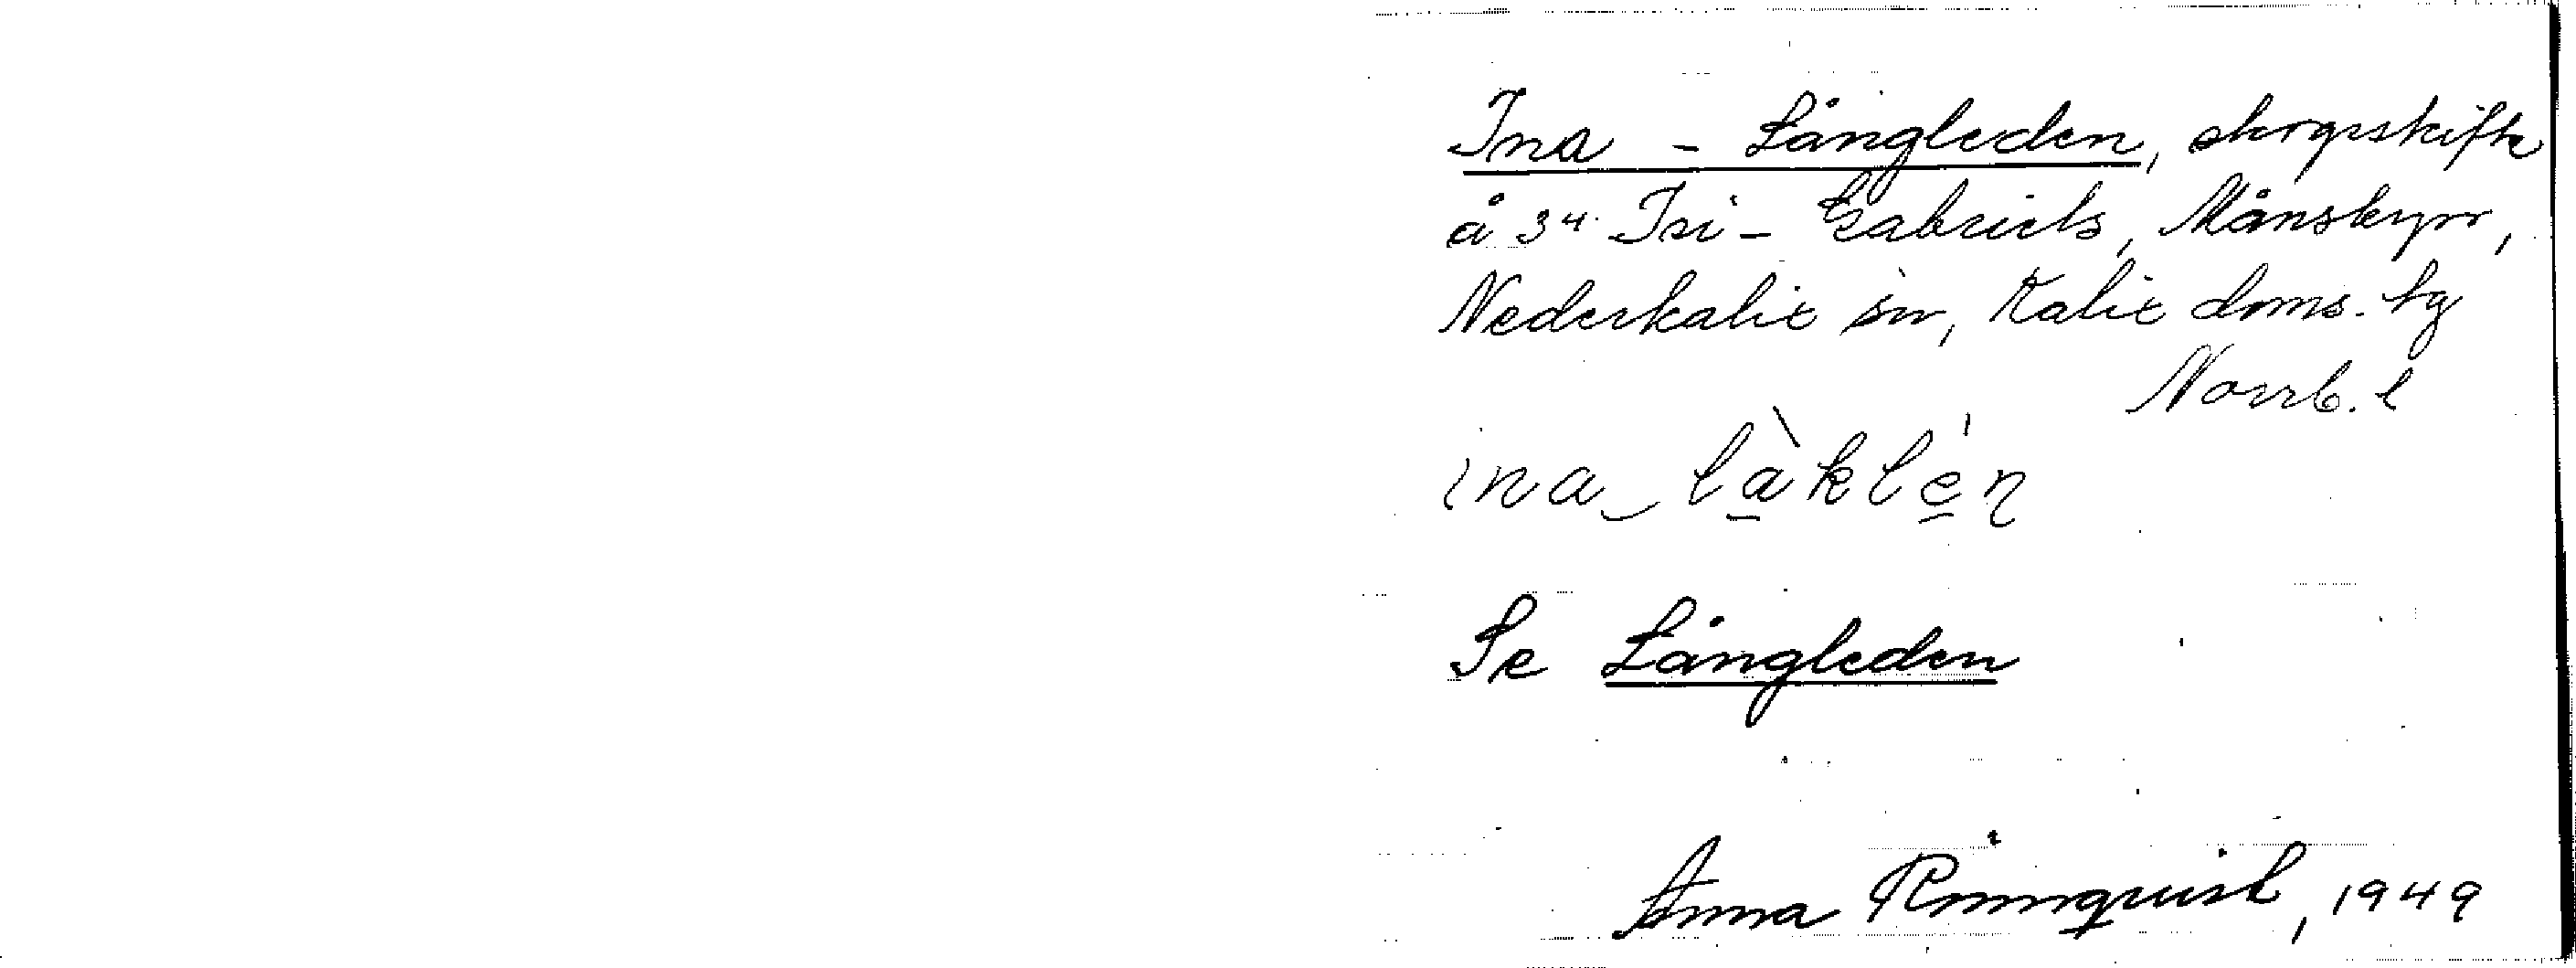 Ina - Långleden, skogsskifte
å 3⁴ Isi - Gabriels, Månsbyn,
Nederkalix sn, Kalix doms. tg
Norrb. l
ina låklèn
Se Långleden
Anna Rönnquist, 1949